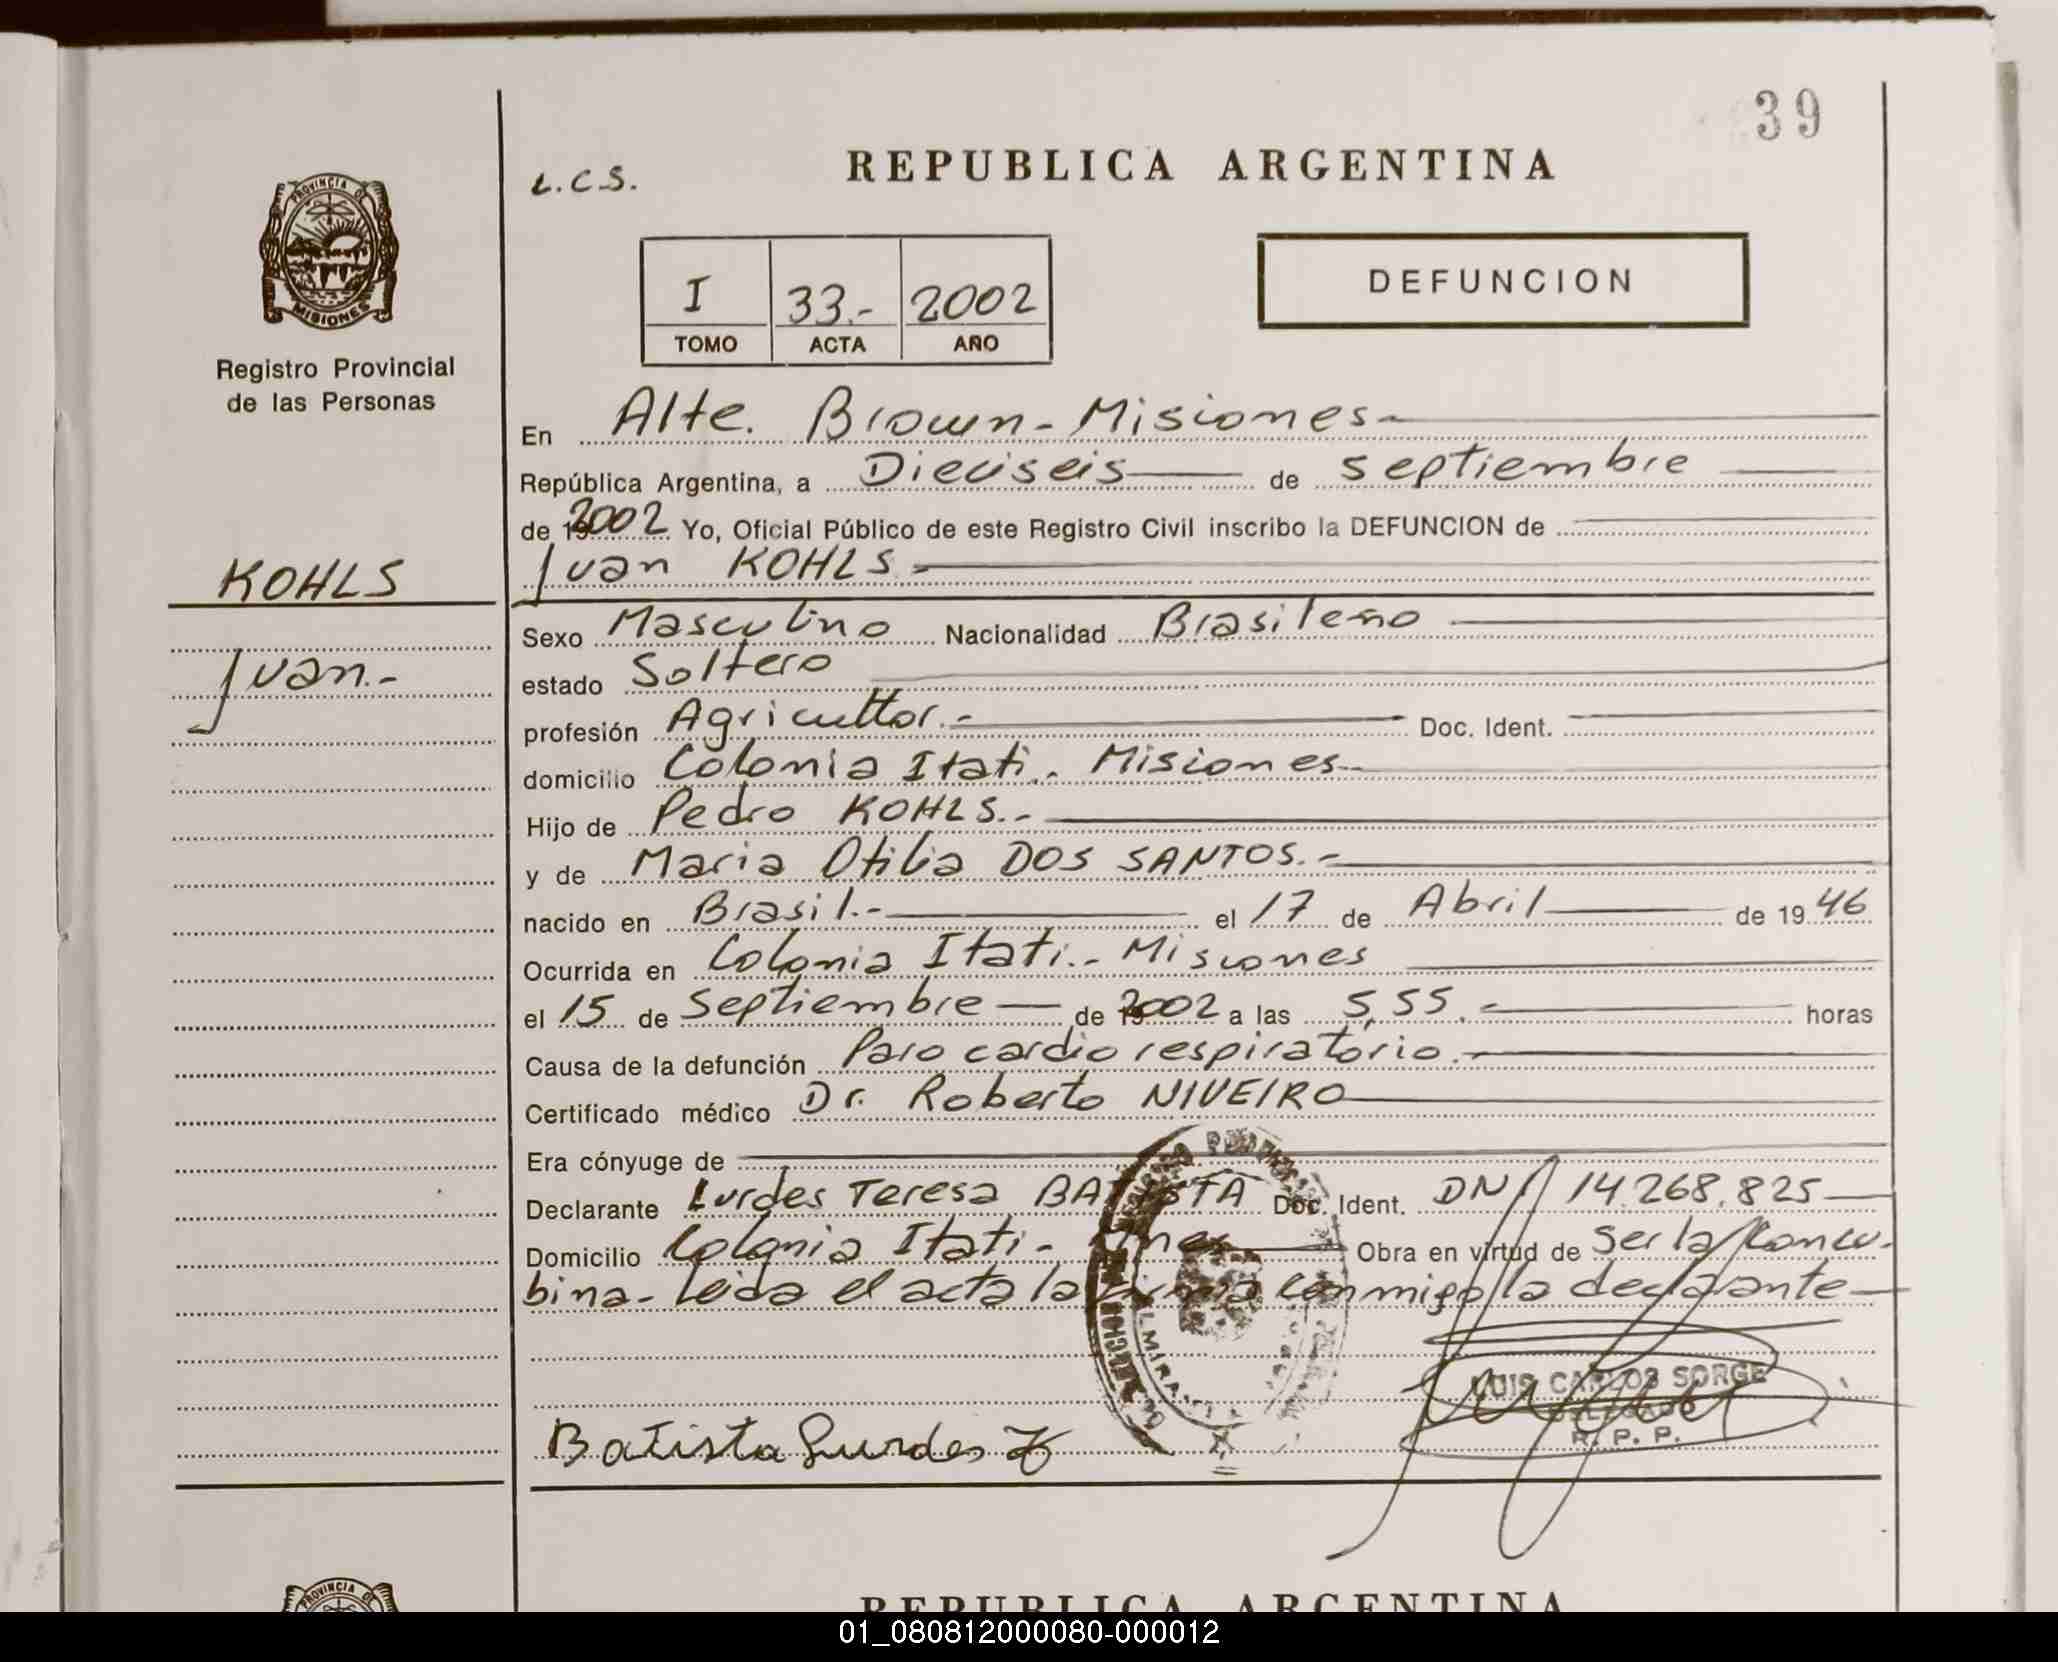 39
REPUBLICA ARGENTINA
L.C.S.
PROVINCIA DE
MISIONES
Registro Provincial
de las Personas
DEFUNCION
I 33.- 2002
TOMO ACTA AÑO
En Alte. Brown - Misiones
República Argentina, a Dieciseis de septiembre
de 2002 Yo, Oficial Público de este Registro Civil inscribo la DEFUNCION de
Juan KOHLS
KOHLS
Juan.-
Sexo Masculino Nacionalidad Brasileño
estado Soltero
profesión Agricultor.- Doc. Ident.
domicilio Colonia Itati.- Misiones
Hijo de Pedro KOHLS.-
y de Maria Otilia DOS SANTOS.-
nacido en Brasil.- el 17 de Abril de 1946
Ocurrida en Colonia Itati.- Misiones
el 15 de Septiembre de 2002 a las 5,55.- horas
Causa de la defunción Paro cardio respiratorio.-
Certificado médico Dr. Roberto NIVEIRO
Era cónyuge de
Declarante Lurdes Teresa BATISTA Doc. Ident. DNI 14.268.825
Domicilio Colonia Itati.- Mnes Obra en virtud de Ser la Concu-
bina- Leida el acta la firma conmigo la declarante
LUIS CARLOS SORGE
DELEGADO
R. P. P.
Batista Lurdes T
REPUBLICA ARGENTINA
PROVINCIA DE
01_080812000080-000012